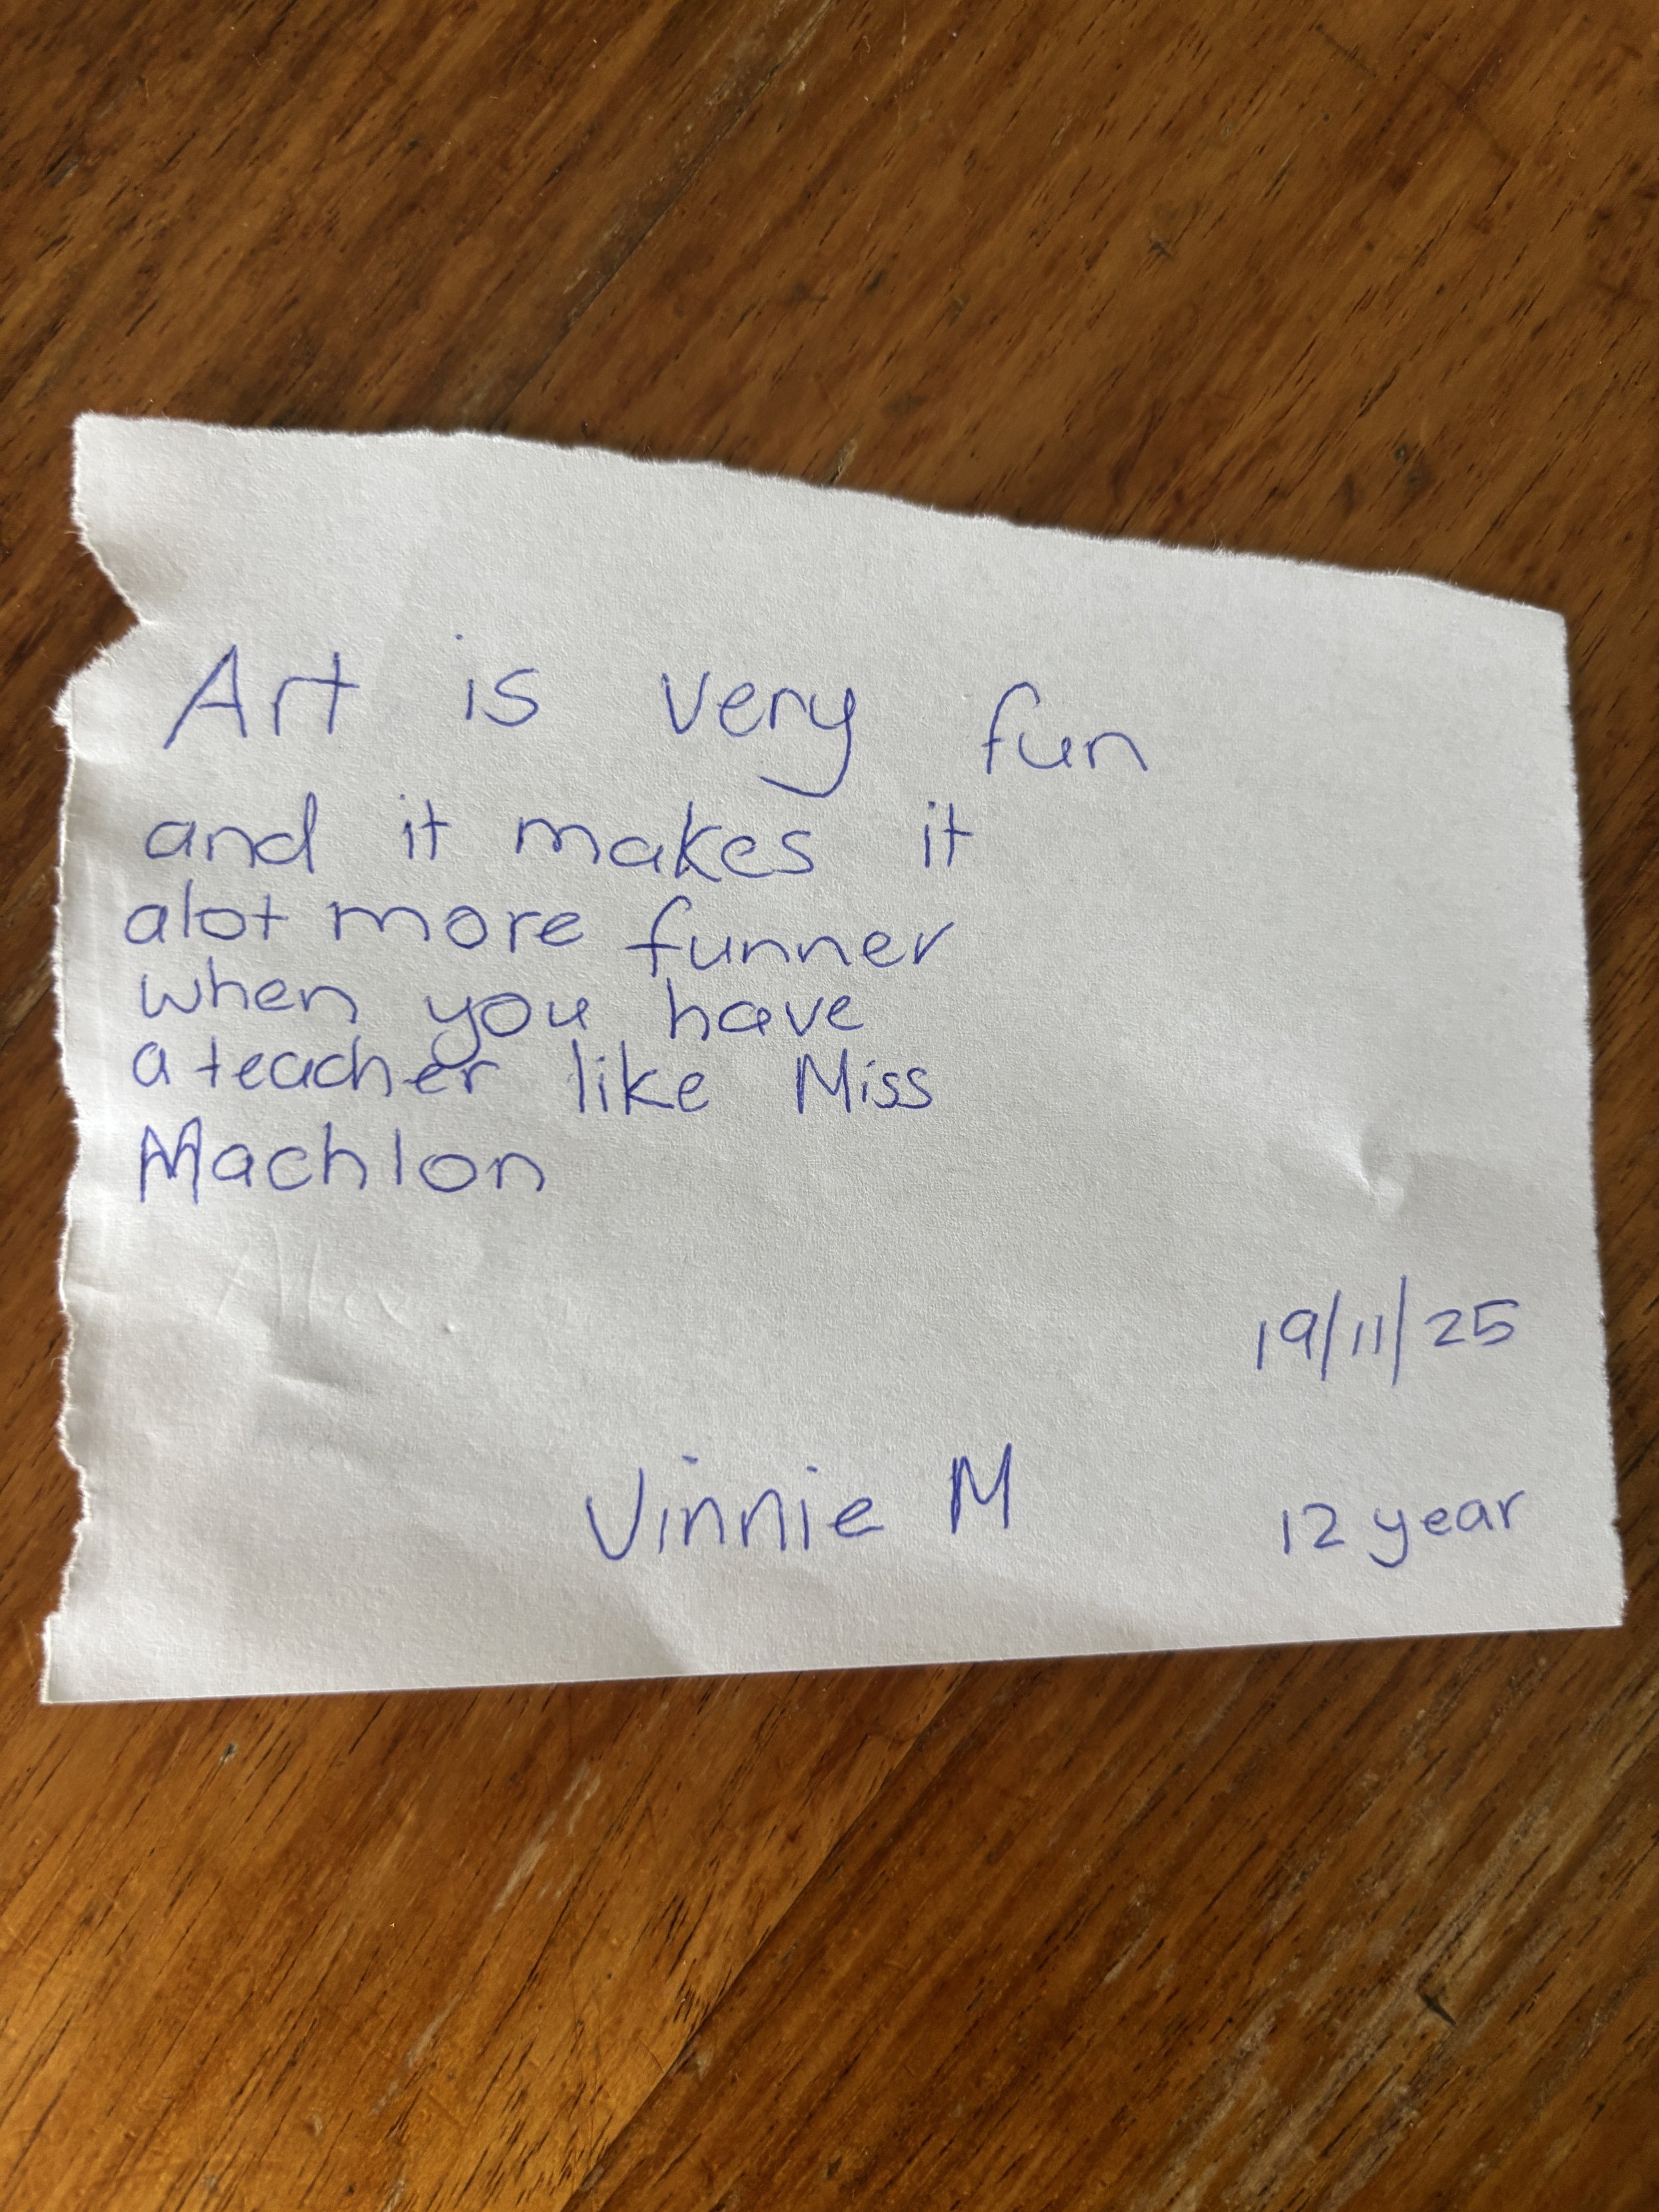 Art is very fun
and it makes it
alot more funner
when you have
a teacher like Miss
Machlon
19/11/25
Vinnie M
12 year